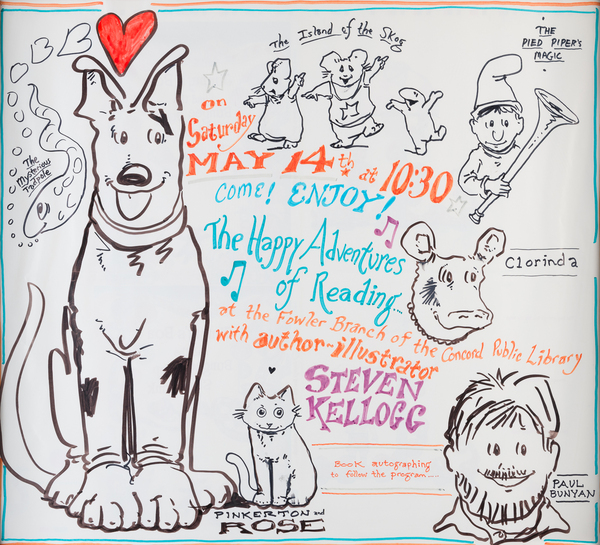 The Island of the Skog
THE
PIED PIPER'S
MAGIC
The
Mysterious
Tadpole
on
Saturday
MAY 14th at 10:30
COME! ENJOY!
The Happy Adventures
of Reading...
Clorinda
at the Fowler Branch of the Concord Public Library
with author-illustrator
STEVEN
KELLOGG
Book autographing
to follow the program...
PAUL
BUNYAN
PINKERTON and
ROSE